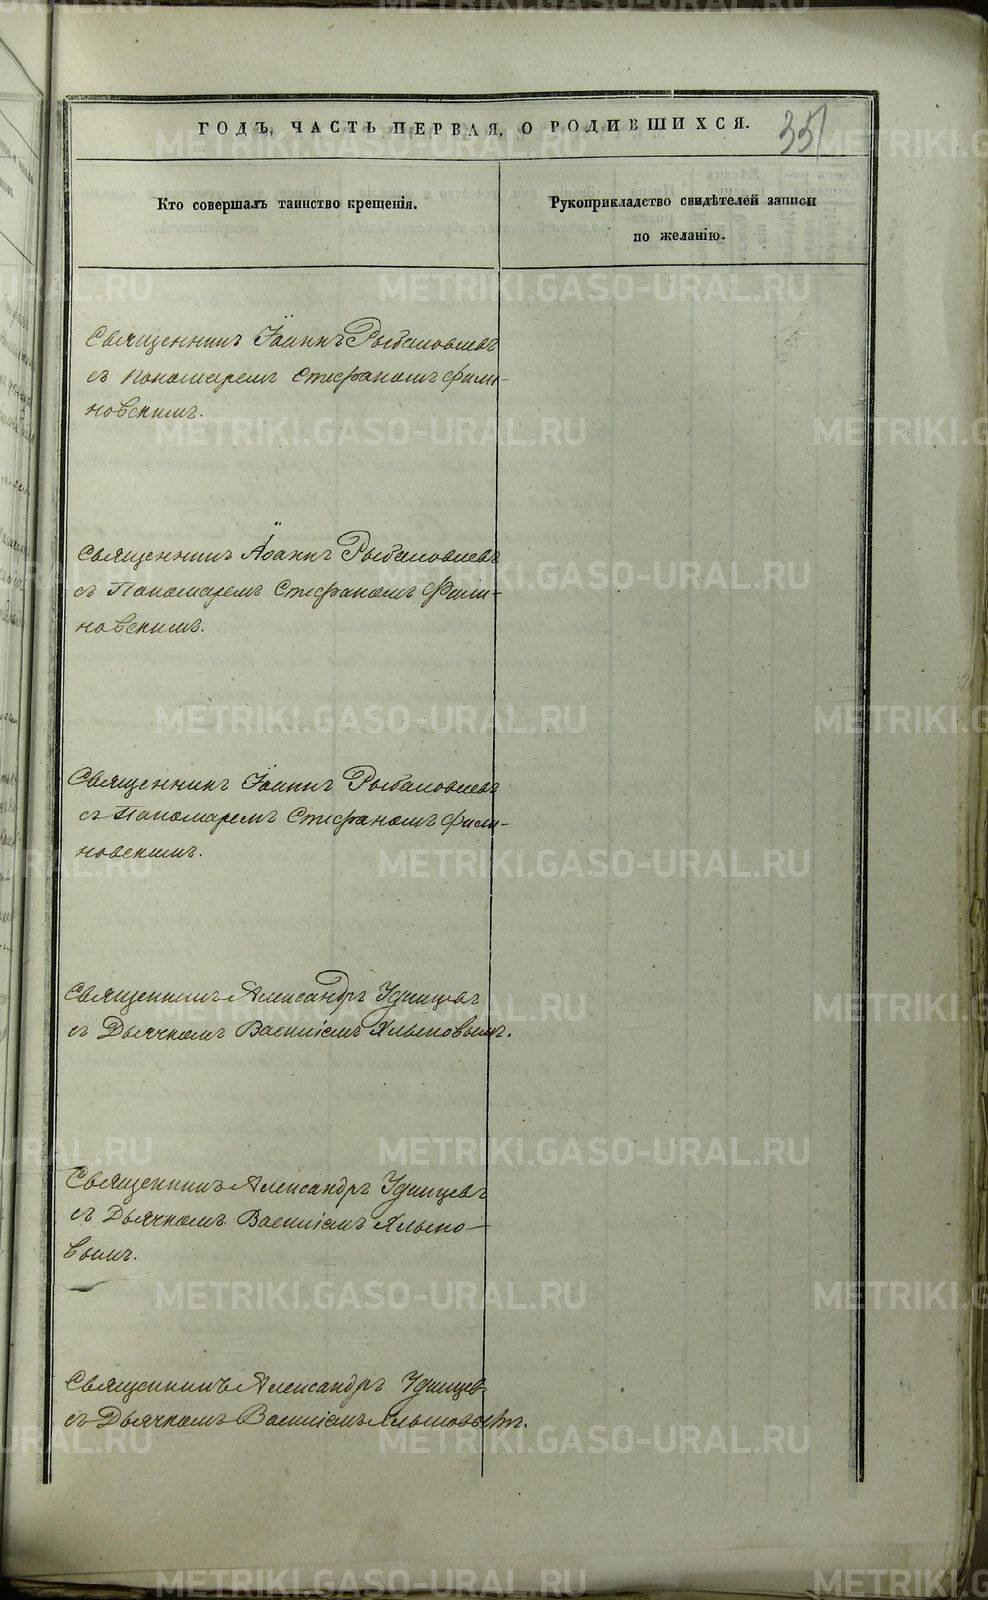 ГОДЪ, ЧАСТЬ ПЕРВАЯ, О РОДИВШИХСЯ.
35
Кто совершалъ таинство крещенія.
Рукоприкладство свидѣтелей записи
по желанію.
Священникъ Іоаннъ Рыболовлевъ
съ Пономаремъ Стефаномъ Фили-
новскимъ.
Священникъ Іоаннъ Рыболовлевъ
съ Пономаремъ Стефаномъ Фили-
новскимъ.
Священникъ Іоаннъ Рыболовлевъ
съ Пономаремъ Стефаномъ Фили-
новскимъ.
Священникъ Александръ Удинцевъ
съ Дьячкомъ Василіемъ Хлыновымъ.
Священникъ Александръ Удинцевъ
съ Дьячкомъ Василіемъ Хлыно-
вымъ.
Священникъ Александръ Удинцев
съ Дьячкомъ Василіемъ Хлыновымъ.
METRIKI.GASO-URAL.RU